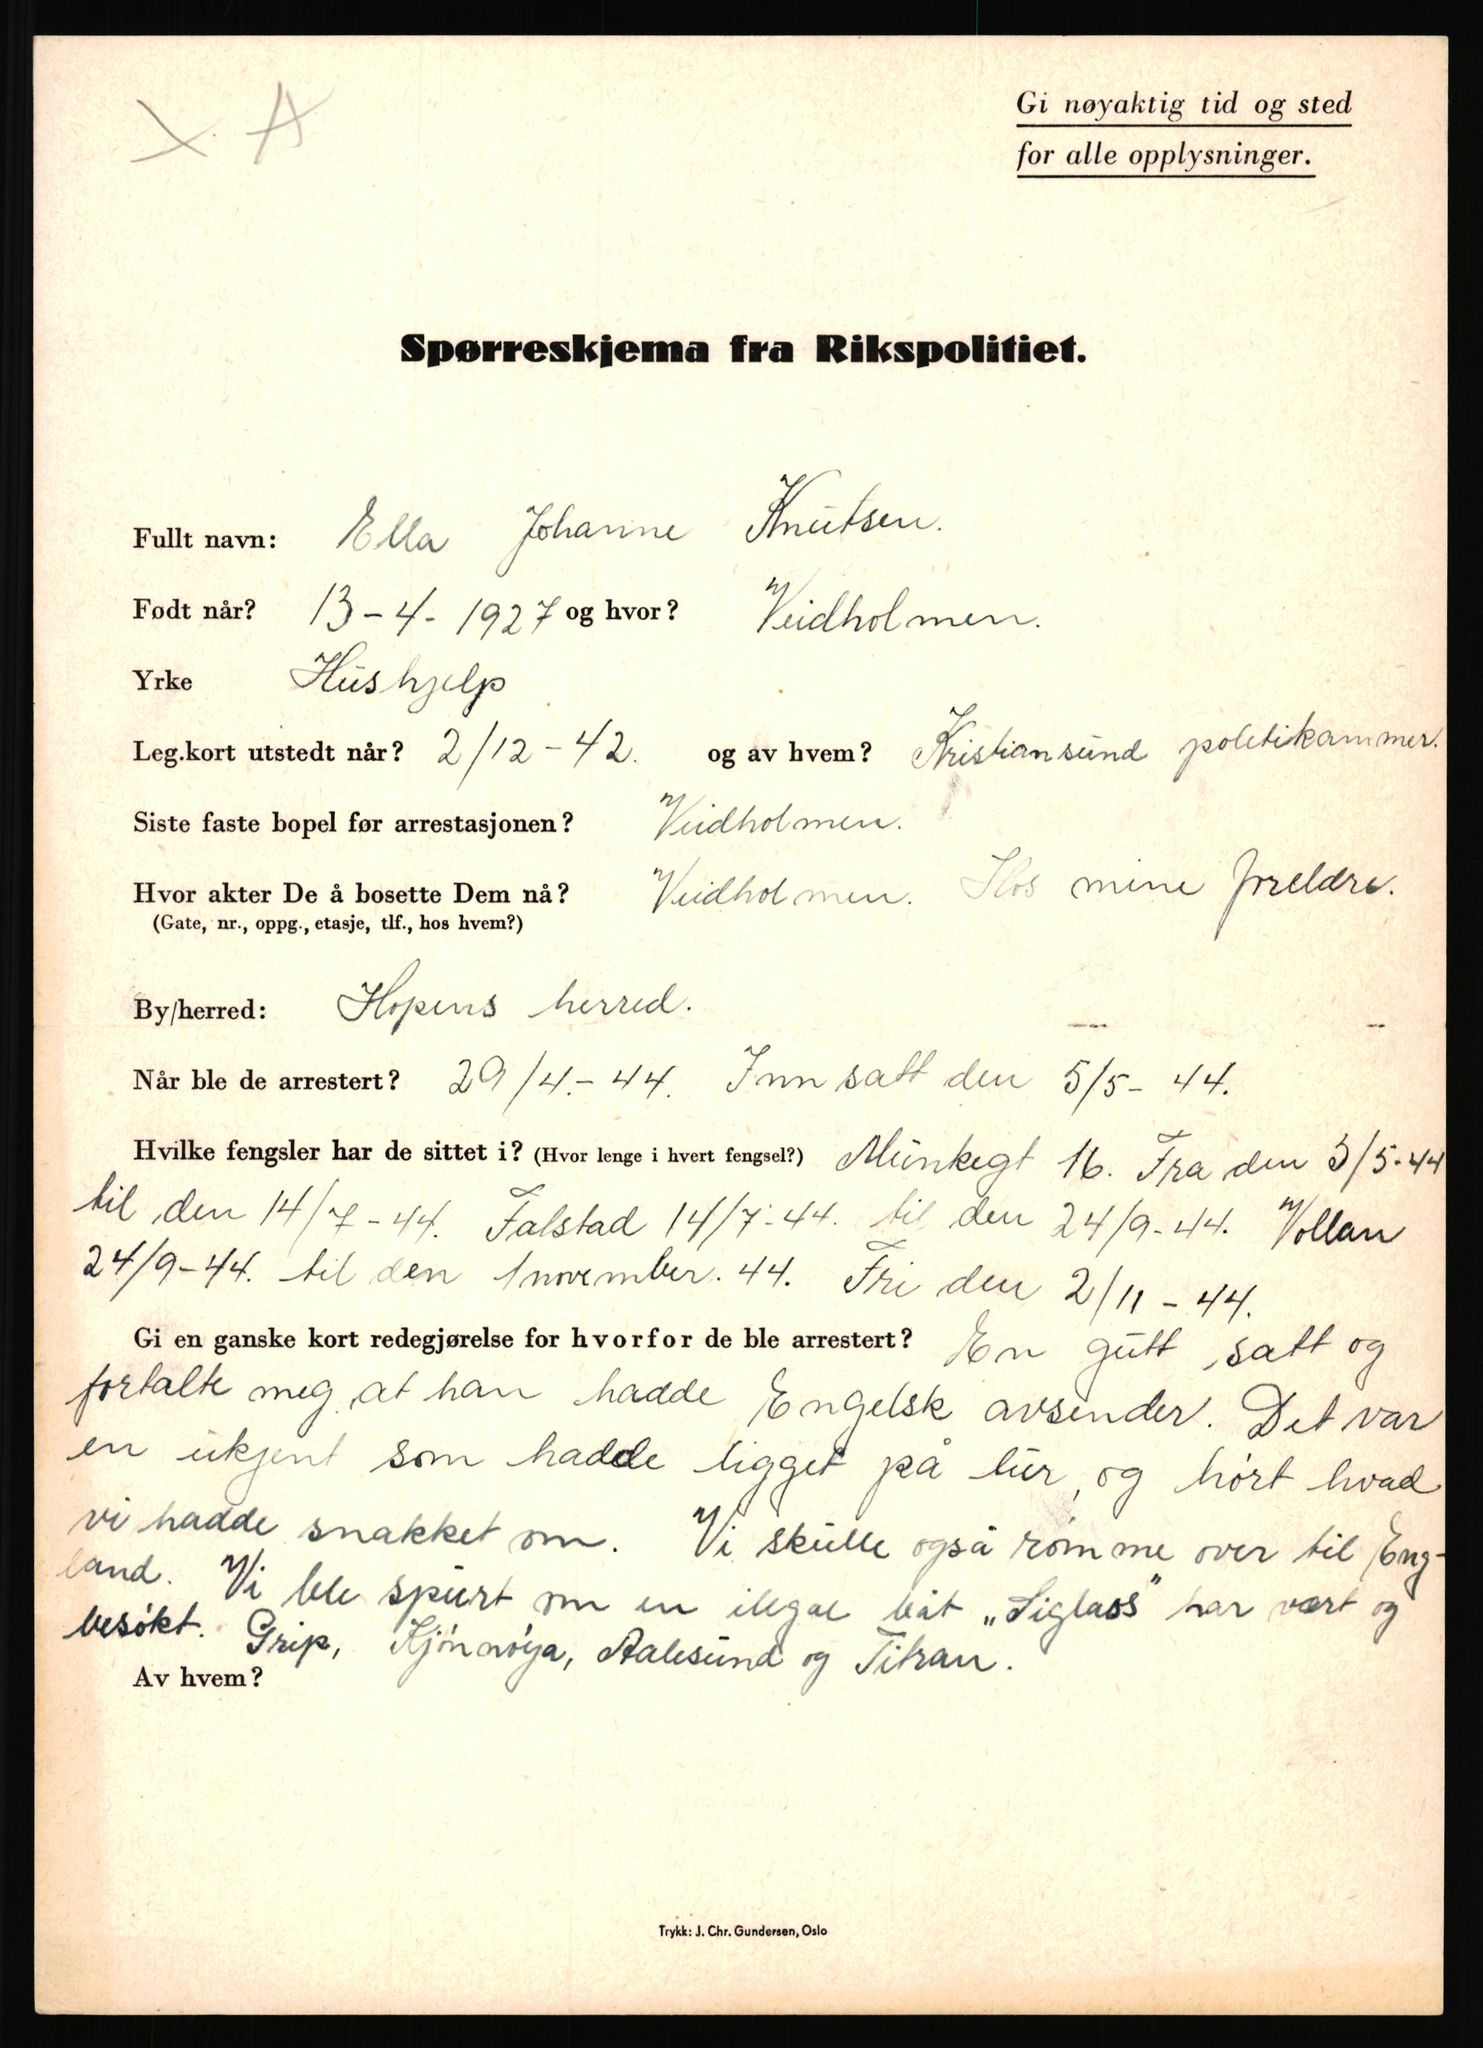 X A
Gi nøyaktig tid og sted
for alle opplysninger.
Spørreskjema fra Rikspolitiet.
Fullt navn: Ella Johanne Knutsen.
Født når? 13-4-1927 og hvor? Veidholmen.
Yrke Hushjelp
Leg.kort utstedt når? 2/12-42. og av hvem? Kristiansund politikammer.
Siste faste bopel før arrestasjonen? Veidholmen.
Hvor akter De å bosette Dem nå? Veidholmen. Hos mine foreldre.
(Gate, nr., oppg., etasje, tlf., hos hvem?)
By/herred: Hopens herred.
Når ble de arrestert? 29/4.-44. Innsatt den 5/5-44.
Hvilke fengsler har de sittet i? (Hvor lenge i hvert fengsel?) Munkegt 16. Fra den 5/5-44
til den 14/7-44. Falstad 14/7-44. til den 24/9-44. Vollan
24/9-44. til den 1 november. 44. Fri den 2/11-44.
Gi en ganske kort redegjørelse for hvorfor de ble arrestert? En gutt satt og
fortalte meg at han hadde Engelsk avsender. Det var
en ukjent som hadde ligget på lur, og hørt hvad
vi hadde snakket om. Vi skulle også rømme over til Eng-
land. Vi ble spurt om en ilegal båt „Siglaos" har vært og
besøkt. Grip, Kjønnøya, Aalesund og Titran.
Av hvem?
Trykk: J. Chr. Gundersen, Oslo